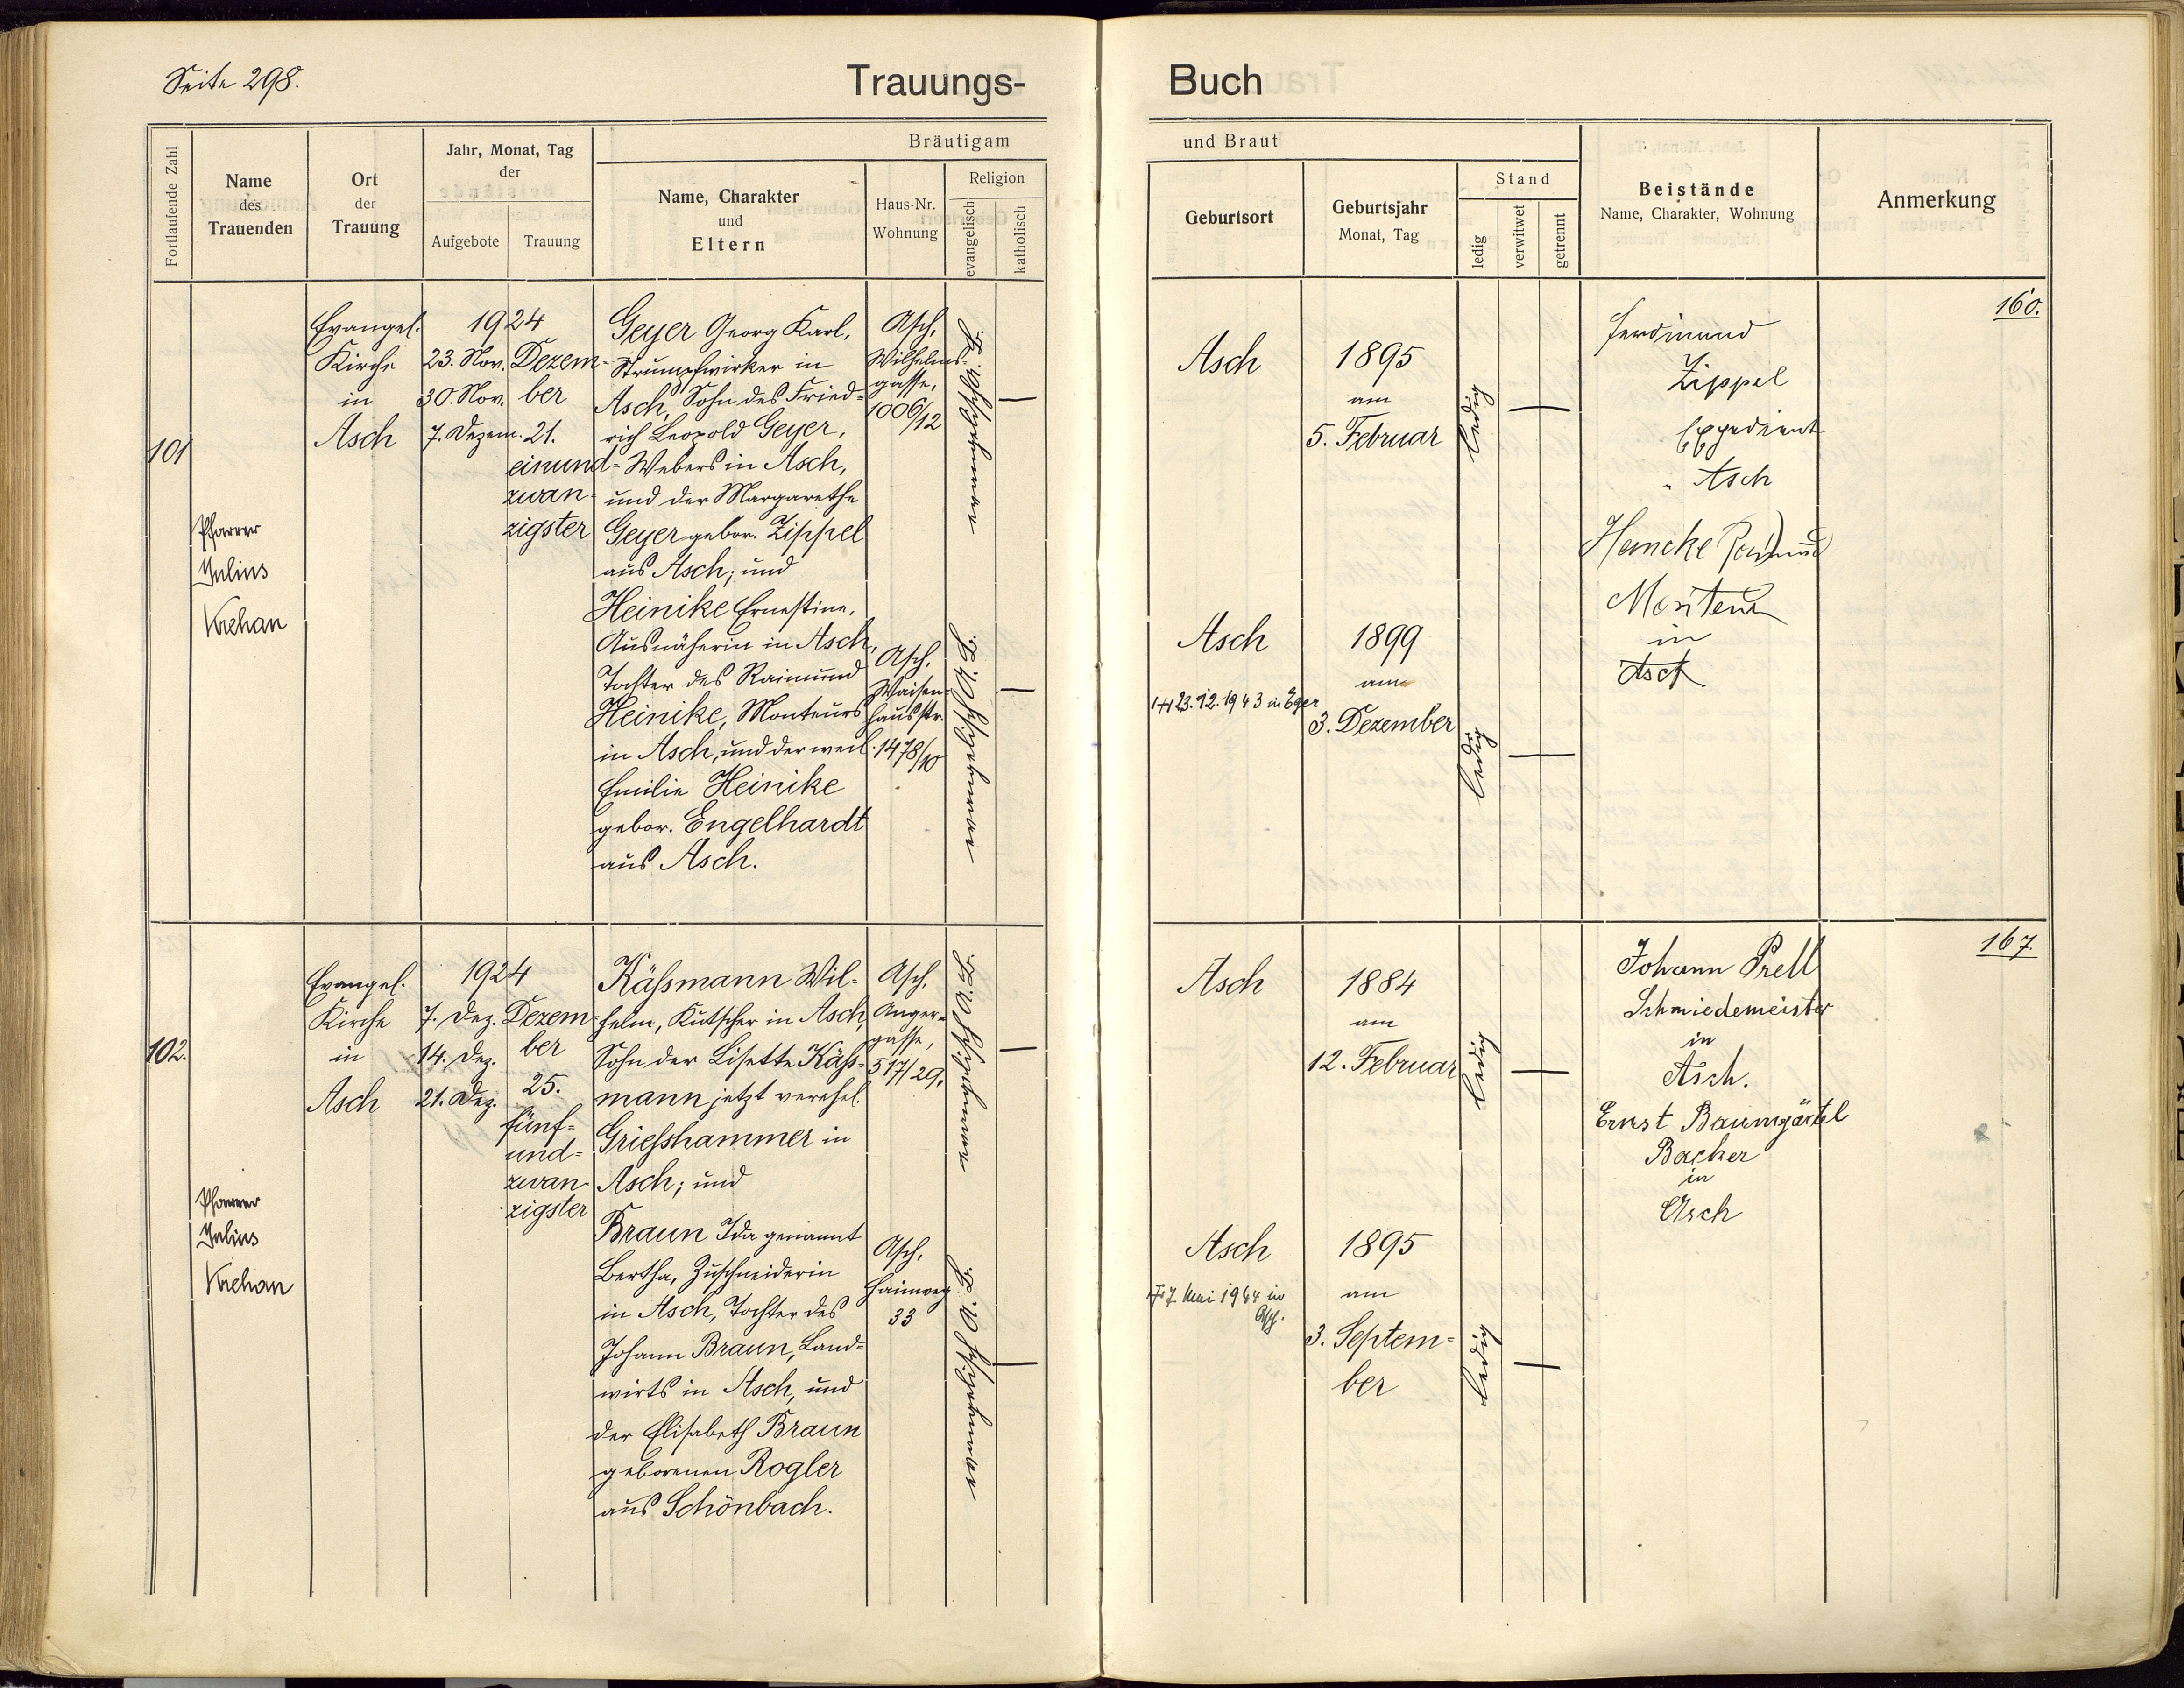 Seite 298.
Trauungs-
Buch
Fortlaufende Zahl
Name
des
Trauenden
Ort
der
Trauung
Jahr, Monat, Tag
der
Aufgebote
Trauung
Bräutigam
Name, Charakter
und
Eltern
Haus-Nr.
Wohnung
Religion
evangelisch
katholisch
und Braut
Geburtsort
Geburtsjahr
Monat, Tag
Stand
ledig
verwitwet
getrennt
Beistände
Name, Charakter, Wohnung
Anmerkung
101
Pfarrer
Julius
Krehan
Evangel.
Kirche
in
Asch
1924
23. Nov.
30. Nov.
7. Dezem.
Dezem-
ber
21.
einund-
zwan-
zigster
Geyer Georg Karl,
Strumpfwirker in
Asch, Sohn des Fried-
rich Leopold Geyer,
Webers in Asch,
und der Margarethe
Geyer gebor. Zippel
aus Asch; und
Heinike Ernestine,
Ausnäherin in Asch,
Tochter des Raimund
Heinike, Monteurs
in Asch, und der weil.
Emilie Heinike
gebor. Engelhardt
aus Asch.
Asch,
Wilhelms-
gasse,
1006/12
Asch,
Waisen-
hausstr.
1478/10
Asch
1895
am
5. Februar
ledig
Asch
23.12.1943 in Eger
1899
am
3. Dezember
ledig
Ferdinand
Zippel
Expedient
Asch
in
Asch
160.
102.
Pfarrer
Julius
Krehan
Evangel.
Kirche
in
Asch
1924
7. Dez.
14. Dez.
21. Dez.
Dezem-
ber
25.
fünf-
und-
zwan-
zigster
Käßmann Wil-
helm, Kutscher in Asch,
Sohn der Lisette Käß-
mann jetzt verehel.
Grießhammer in
Asch; und
Braun Ida genannt
Bertha, Zuschneiderin
in Asch, Tochter des
Johann Braun, Land-
wirts in Asch, und
der Elisabeth Braun
geborenen Rogler
aus Schönbach.
Asch,
Anger-
gasse,
517/29.
Asch,
Hainweg
33
Asch
1884
am
12. Februar
ledig
Asch
7. Mai 1944 in
Asch.
1895
am
3. Septem-
ber
ledig
Johann Prell
Schmiedemeister
in
Asch.
Ernst Baumgärtel
Bäcker
in
Asch
167.